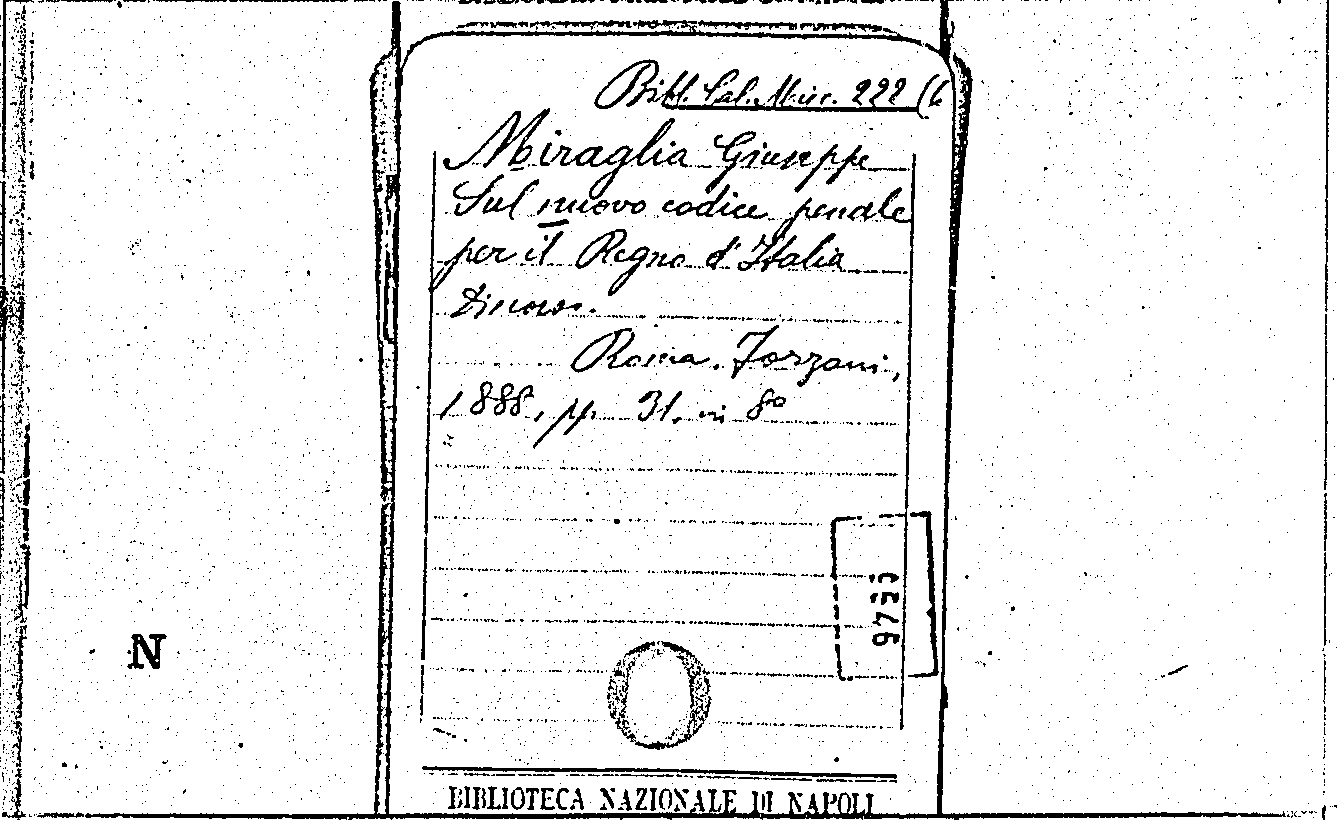 Bibl. Sal. Misc. 222 (6
Miraglia Giuseppe
Sul nuovo codice penale
per il Regno d'Italia
Discorso.
Roma. Forzani,
1888, pp. 31. in 8º
N
BIBLIOTECA NAZIONALE DI NAPOLI